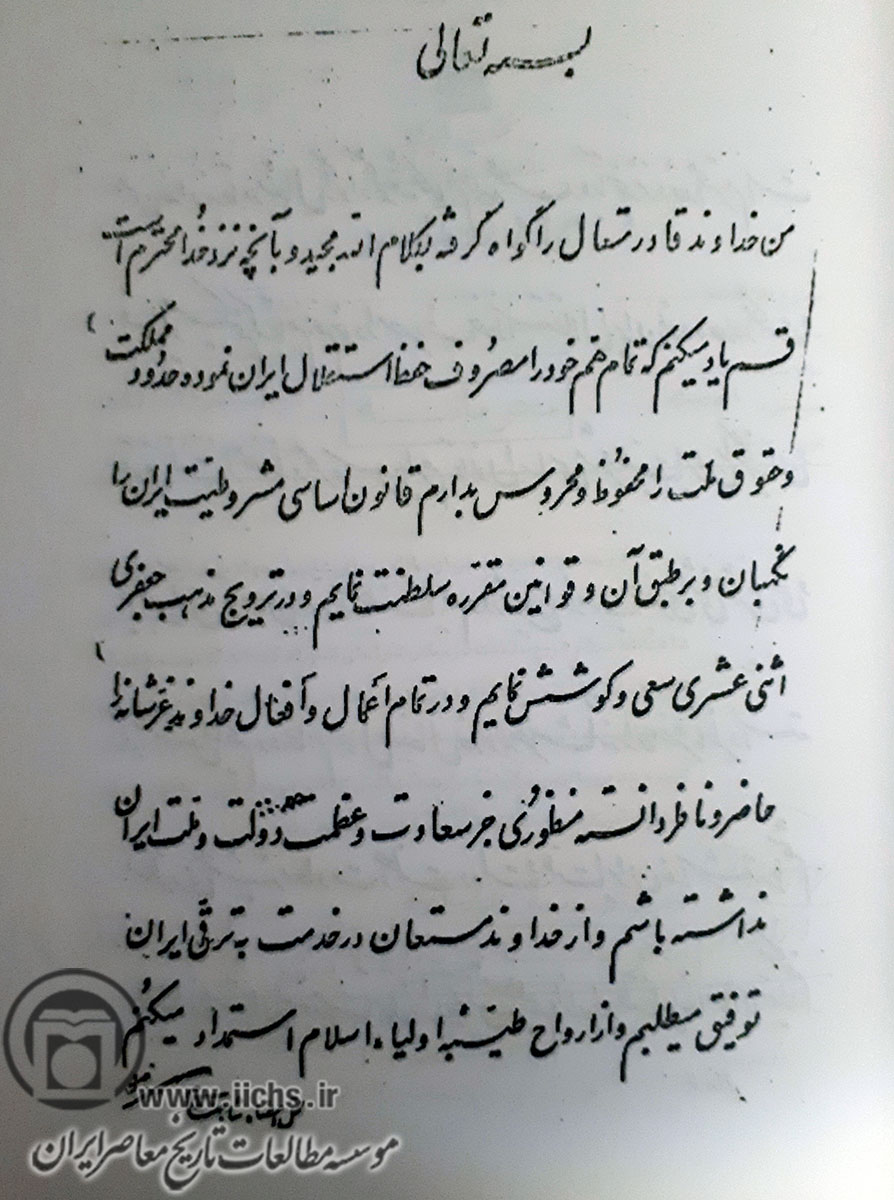 بسمه تعالی
من خداوند قادر متعال را گواه گرفته بکلام الله مجید و بآنچه نزد خدا محترم است
قسم یاد میکنم که تمام همّ خود را مصرُوف حفظ استقلال ایران نموده حدُود مملکت
و حقوق ملت را محفُوظ و محروس بدارم قانون اساسی مشروطیت ایران را
نگهبان و بر طبق آن و قوانین مقرّره سلطنت نمایم و در ترویج مذهب جعفری
اثنی عشری سعی و کوشش نمایم و در تمام اَعمال و اَفعال خداوند عزّ شانه را
حاضر و ناظر دانسته منظوُری جز سعادت و عظمت دَولت و ملت ایران
نداشته باشم و از خداوند مستعان در خدمت به ترقّی ایران
توفیق میطلبم و از ارواح طیّبه اولیاء اسلام استمداد میکنُم
www.iichs.ir
موسسه مطالعات تاریخ معاصر ایران